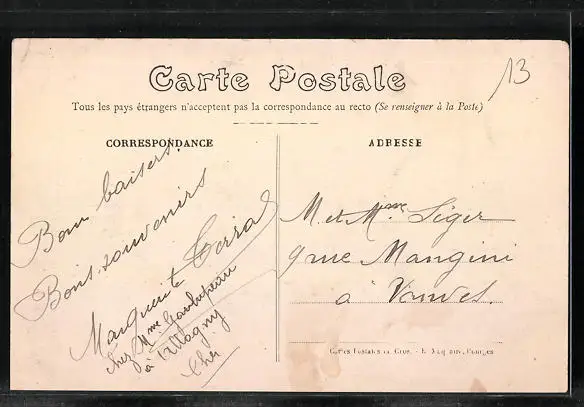 13
Carte Postale
Tous les pays étrangers n'acceptent pas la correspondance au recto (Se renseigner à la Poste)
CORRESPONDANCE
Bons baisers.
Bons souvenirs
Marguerite
chez Mme
à
Cher
ADRESSE
M. et Mme Léger
9 rue Mangini
à Vanves.
Cartes Postales en Gros. - Bourges